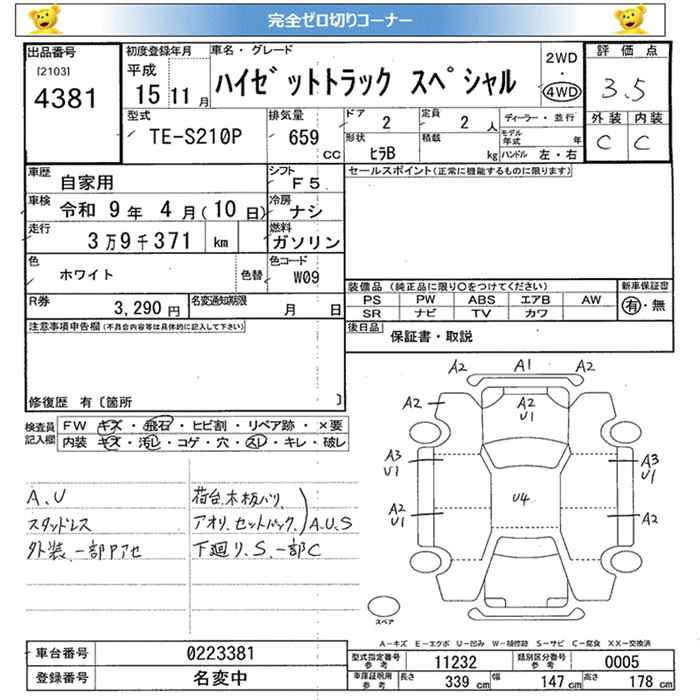 完全ゼロ切りコーナー
出品番号
[2103]
4381
初度登録年月
平成
15 11月
車名・グレード
ハイゼットトラック スペシャル
2WD
・
4WD
評価点
3.5
外装 内装
C C
型式
TE-S210P
排気量
659
CC
ドア
2
定員
2 人
形状
ヒラB
積載
kg
ディーラー・並行
モデル年式 年
ハンドル 左・右
車歴
自家用
シフト
F5
車検
令和 9年 4月(10日)
冷房
ナシ
走行
3万9千371 km
燃料
ガソリン
色
ホワイト
色替
色コード
W09
R券
3,290 円
名変通知期限
月 日
セールスポイント(正常に機能するものに限ります)
装備品 (純正品に限り○をつけてください)
PS PW ABS エアB AW
SR ナビ TV カワ
新車保証書
有・無
後日品
保証書・取説
注意事項申告欄(不具合内容等は具体的に記入して下さい)
修復歴 有〔箇所 〕
検査員記入欄
FW キズ・飛石・ヒビ割・リペア跡・×要
内装 キズ・汚レ・コゲ・穴・スレ・キレ・破レ
A.U
スタッドレス
外装、一部アセ
荷台木板バリ
アオリ.セットバック.
A.U.S
下廻り.S.一部C
A2 A1 A2
A2
A2
U1
A3
U1
A3
U1
A2
U1
U4
A2
スペア
A-キズ E-エクボ U-凹み W-補修跡 S-サビ C-腐食 XX-交換済
車台番号
0223381
登録番号
名変中
型式指定番号
参考
11232
類別区分番号
参考
0005
車庫証明用
参考
長さ 339 cm 幅 147 cm 高さ 178 cm